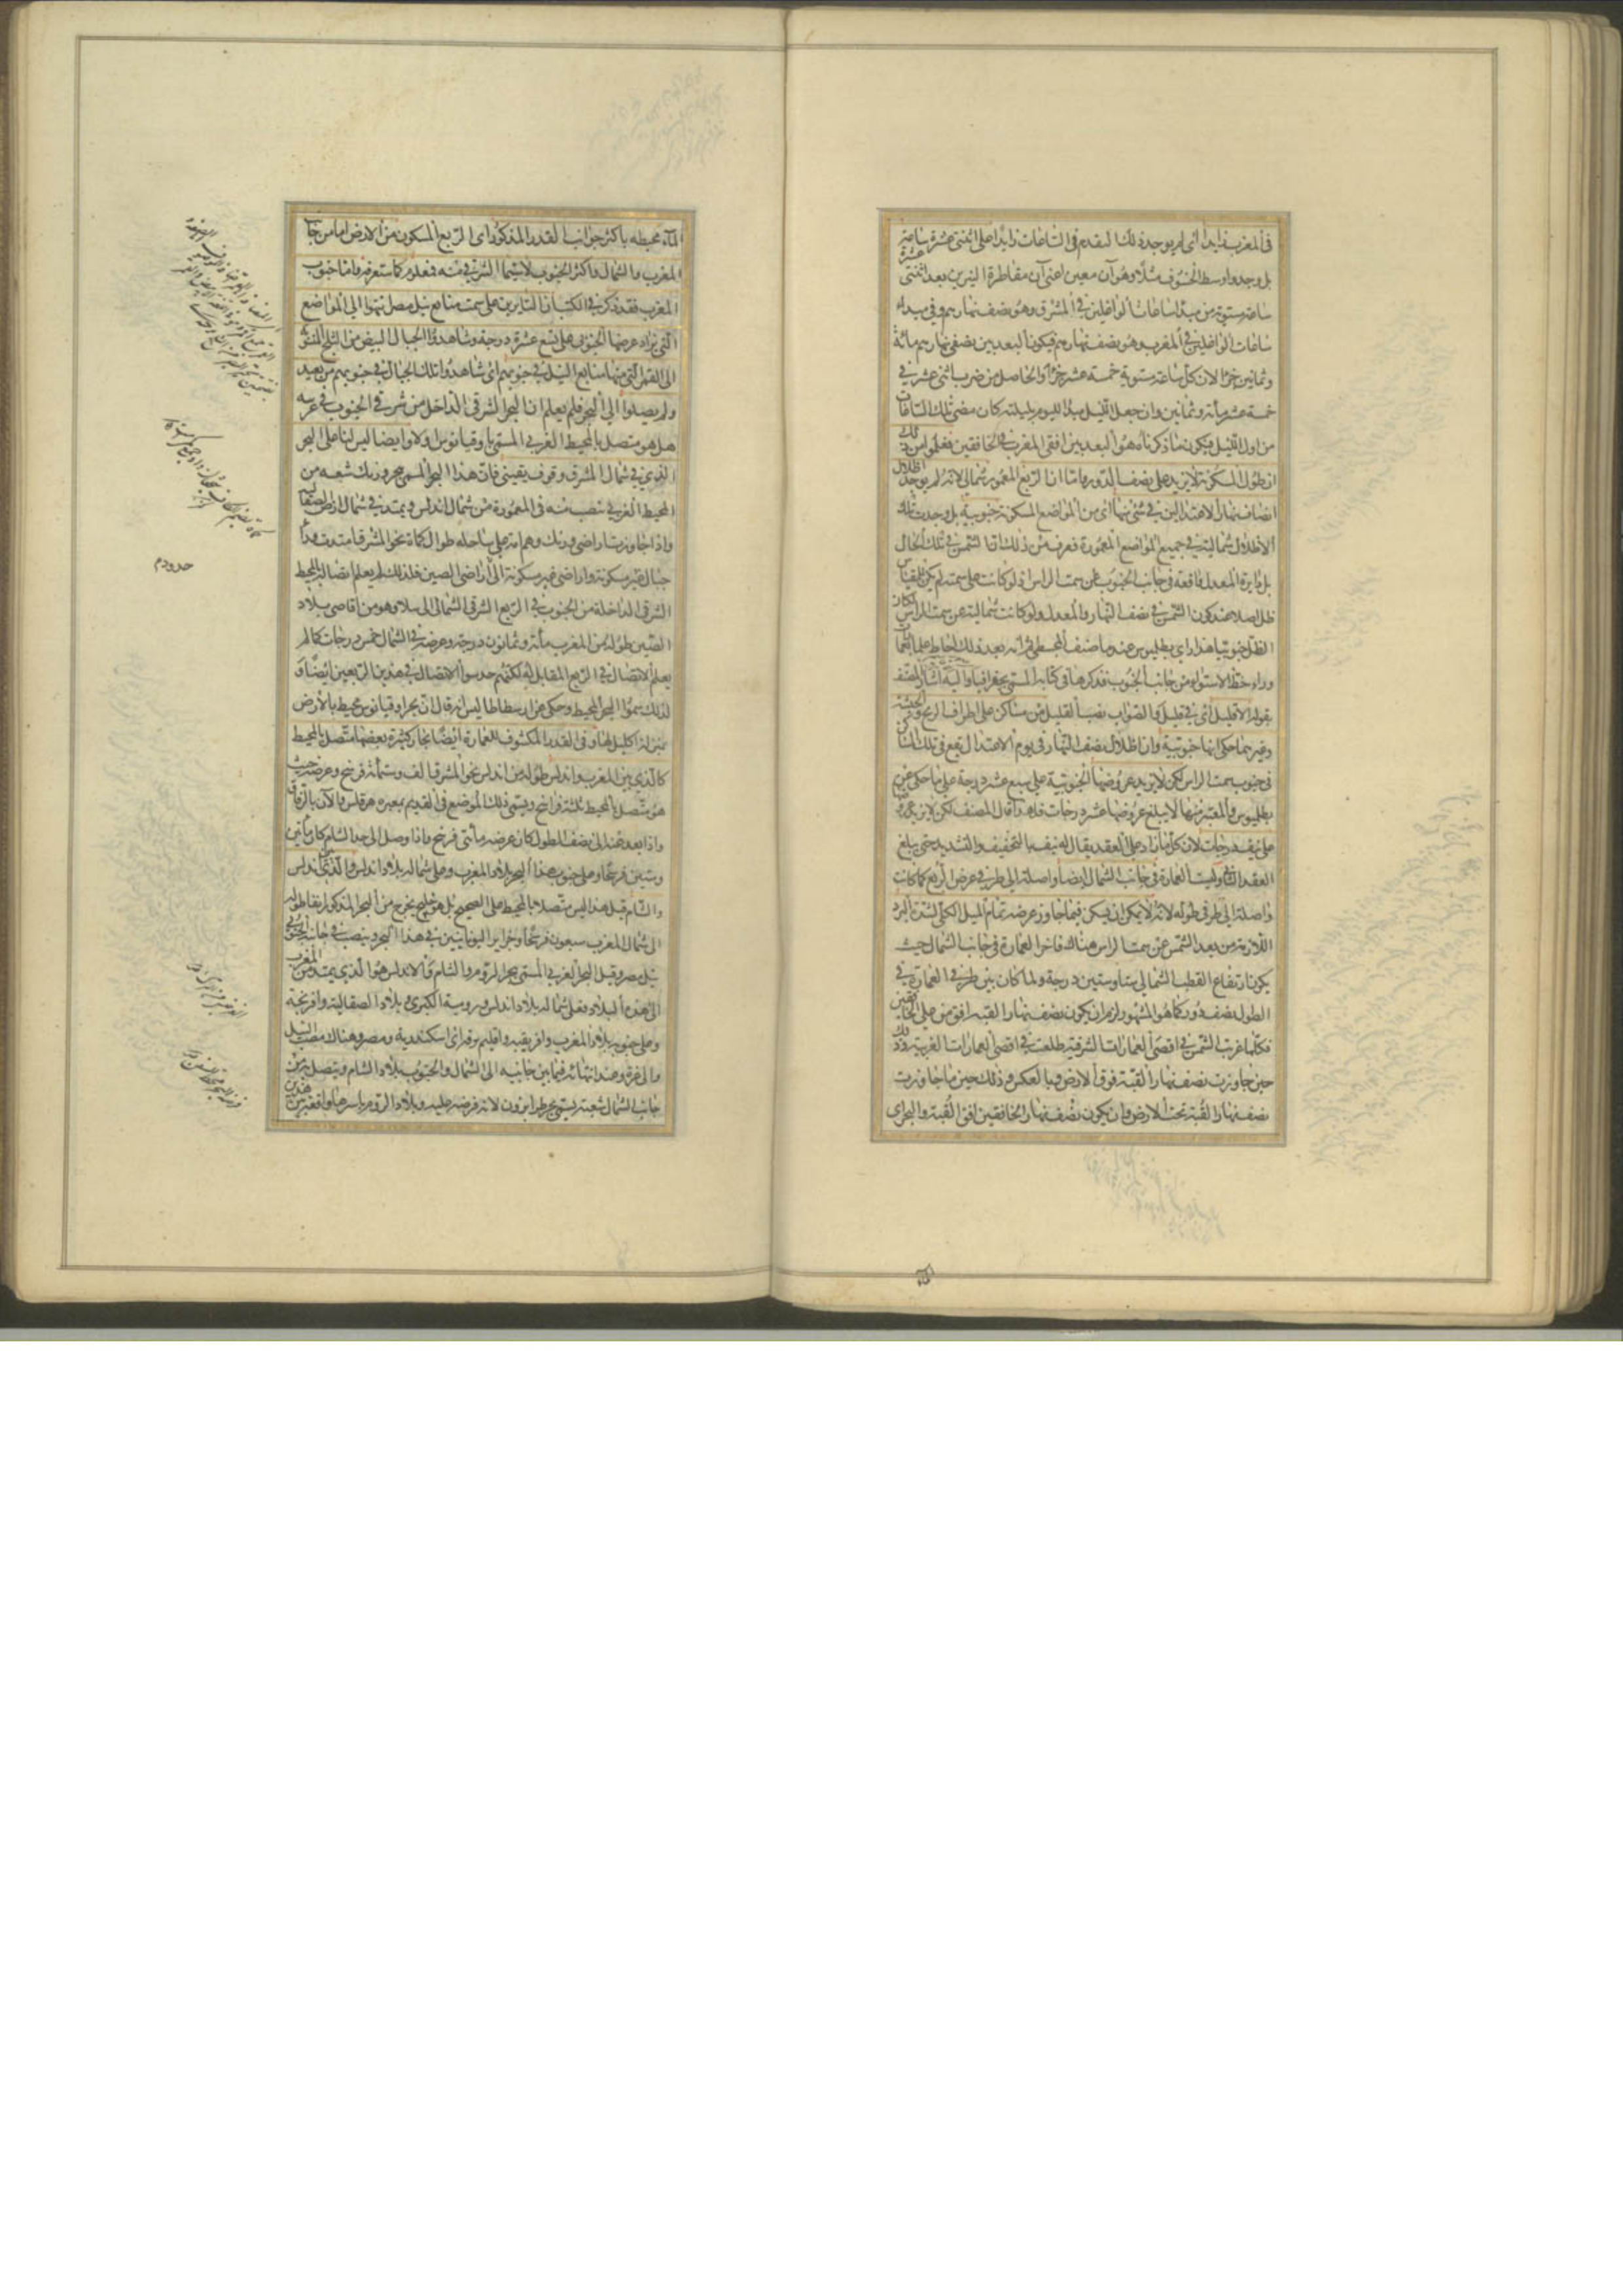 في المغرب زايدا اي لم يوجد ذلك التقدم في الساعات زايدا على اثنتي عشرة ساعة
بل وجدوا وسط الخسوف مثلا وهو آن معين اعني آن مقاطرة النيرين بعد اثنتي عشرة
ساعة مستوية من مبدأ ساعات الواغلين في المشرق وهو نصف نهارهم وفي مبداء
ساعات الواغلين في المغرب وهو نصف نهارهم فيكون البعد بين نصفي نهارهم مائة
وثمانين جزءا لان كل ساعة مستوية خمسة عشر جزءا والحاصل من ضرب اثني عشر في
خمسة عشر مأة وثمانين وان جعل الليل مبدأ اليوم بليلته كان مضى تلك الساعات
من اول الليل فيكون ما ذكرناه هو البعد بين افقي المغرب في الخافقين فعلموا من ذلك
ان طول المسكونة لا يزيد على نصف الدور واما ان الربع المعمور شمالي لانه لم يوجد اظلال
انصاف نهار الاعتدالين في شئ منها اي من المواضع المسكونة جنوبية بل وجدت تلك
الاظلال شمالية في جميع المواضع المعمورة فعرف من ذلك ان الشمس في تلك الحال
بل دايرة المعدل واقعة في جانب الجنوب عن سمت الراس اذ لو كانت على سمته لم يكن للمقياس
ظل اصلا عند كون الشمس في نصف النهار والمعدل ولو كانت شمالية عن سمت الراس لكان
الظل جنوبيا هذا راي بطليموس عند ما صنف المجسطي ثم انه بعد ذلك احاط علما بعمارات
وراء خط الاستواء من جانب الجنوب فذكرها في كتابه المسمى بجغرافيا واليه اشار المصنف
بقوله الا قليل اي في قليل والصواب نصب القليل من مساكن على اطراف الزنج والحبشة
وغيرهما حكى انها جنوبية وان اظلال نصف النهار في يوم الاعتدال تقع في تلك المساكن
في جنوب سمت الراس لكن لا يزيد عروضها الجنوبية على سبع عشر درجة على ما حكى عن
بطليموس والمعتبر منها لا يبلغ عروضها عشر درجات فلهذا قال المصنف لكن لا يزيد عروضها
على نيف درجات لان كل ما زاد على العقد يقال له نيف بالتخفيف والتشديد حتى يبلغ
العقد الثاني وليست العمارة في جانب الشمال ايضا واصلة الى طرفي عرض الربع كما كانت
واصلة الى طرفي طوله لانه لا يمكن ان يسكن فيما جاوز عرضه تمام الميل الكلي لشدة البرد
اللازمة من بعد الشمس عن سمت الراس هناك فاخر العمارة في جانب الشمال حيث
يكون ارتفاع القطب الشمالي ستا وستين درجة ولما كان بين طرفي العمارة في
الطول نصف دور كما هو المشهور لزم ان يكون نصف نهار القبة افق من على الخافقين
فكلما غربت الشمس في اقصى العمارات الشرقية طلعت في اقصى العمارات الغربية وذلك
حين جاوزت نصف نهار القبة فوق الارض وبالعكس وذلك حين ما جاوزت
نصف نهار القبة تحت الارض وان يكون نصف نهار الخافقين افق القبة والبحر اي
الماء محيطه باكثر جوانب القدر المذكور اي الربع المسكون من الارض اما من جانب
المغرب والشمال واكثر الجنوب لا سيما الشرقي منه فمعلوم كما ستعرفه واما جنوب
المغرب فقد ذكر في الكتب ان السايرين على سمت منابع نيل مصر انتهوا الى المواضع
التي زاد عرضها الجنوبي على تسع عشرة درجة وشاهدوا الجبال البيض من الثلج المنسوبة
الى القمر التي منها منابع النيل في جنوبهم اي شاهدوا تلك الجبال في جنوبهم من بعيد
ولم يصلوا الى البحر فلم يعلم ان البحر الشرقي الداخل من شرقي الجنوب في غربيه
هل هو متصل بالمحيط الغربي المسمى باوقيانوس او لا وايضا ليس لنا على البحر
الذي في شمال المشرق وقوف يقيني فان هذا البحر المسمى بحر ورنك شعبه من
المحيط الغربي تنصب منه في المعمورة من شمال اندلس ويمتد في شمال ارض الصقالبة
واذا جاوزت اراضي ورنك وهم امة على ساحله طوال كماة نحو المشرق امتدت وراء
جبال غير مسكونة واراضي غير مسكونة الى اراضي الصين فلذلك لم يعلم اتصاله بالمحيط
الشرقي الداخلة من الجنوب في الربع الشرقي الشمالي الى سلا وهو من اقاصي بلاد
الصين طوله من المغرب مأة وثمانون درجة وعرضه في الشمال خمس درجات كما لم
يعلم الاتصال في الربع المقابل له لكنهم حدسوا الاتصال في هذين الربعين ايضا و
لذلك سموا البحر المحيط وحكى عن ارسطاطاليس انه قال ان بحر اوقيانوس محيط بالارض
بمنزلة اكليل لها وفي القدر المكشوف للعمارة ايضا بحار كثيرة بعضها متصل بالمحيط
كالذي بين المغرب واندلس طوله من اندلس نحو المشرق الف وستمائة فرسخ وعرضه حيث
هو متصل بالمحيط ثلثة فراسخ ويسمى ذلك الموضع في القديم بمعبره هرقلس والآن بالزقاق
واذا بعد عنه الى نصف الطول كان عرضه مأتي فرسخ واذا وصل الى حد الشام كان مأتين
وستين فرسخا وعلى جنوب هذا البحر بلاد المغرب وعلى شماله بلاد اندلس والذي بين اندلس
والشام قيل هذا ليس متصلا بالمحيط على الصحيح بل هو خليج يخرج من البحر المذكور انفا طوله
الى شمال المغرب سبعون فرسخا وجزاير اليونانيين في هذا البحر وينصب في جانبه الجنوبي
نيل مصر وقيل البحر الغربي المسمى ببحر الروم والشام والاندلس هو الذي يمتد من المغرب
الى هذه البلاد فعلى شماله بلاد اندلس ورومية الكبرى وبلاد الصقالبة وافرنجة
وعلى جنوبه بلاد المغرب وافريقيه واقليم برقه اي اسكندرية ومصر وهناك مصب النيل
والى غزة وعند انتهائه فيما بين جانبيه الى الشمال والجنوب بلاد الشام ويتصل به من
جانب الشمال شعبة يسمى بحر طرابزون لانه فرضه عليه وبلاد الروم باسرها واقعة بين هذين
حدود م